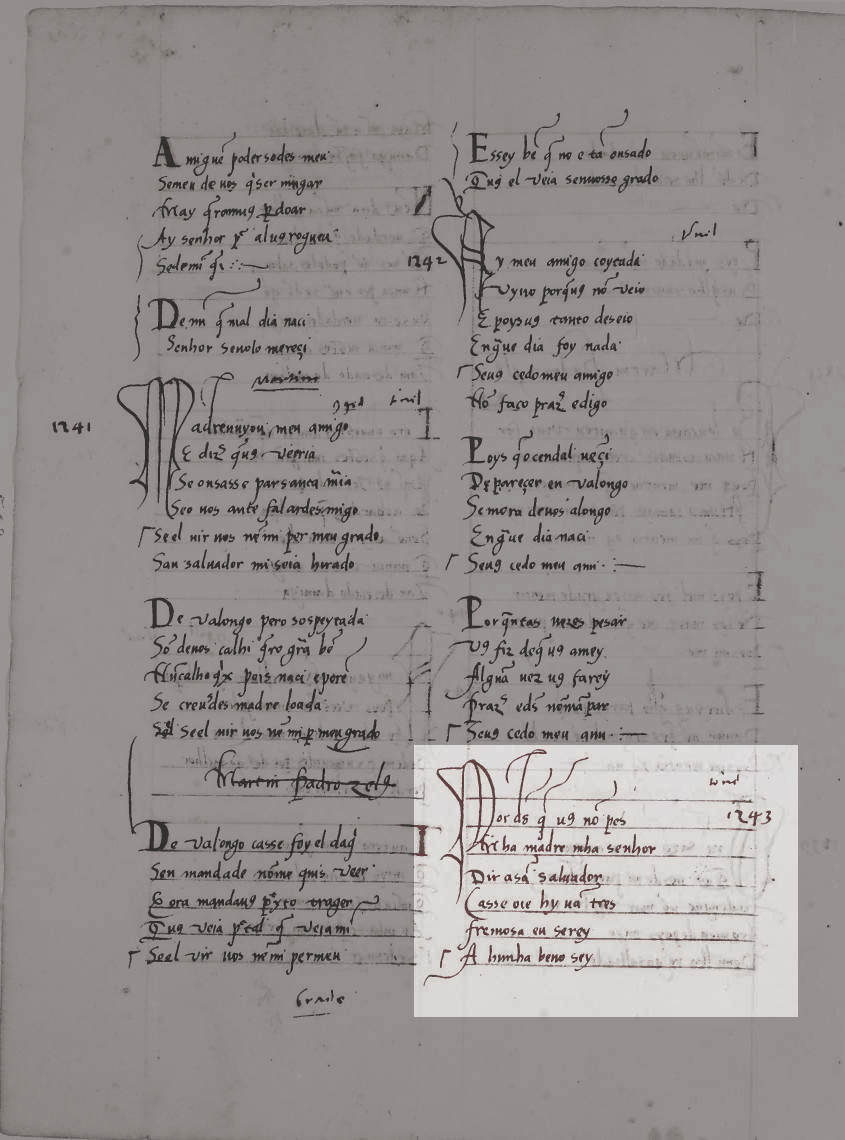 A migue poder sodes meu
Someu de uos q̄ser mingar
May q̄romuꝯ ꝑdoar
Ay senhor pr̄ aluꝯ rogueu
Sedemi q̄
De mi q̄ mal dia naci
Senhor seuolo mereçi
1241
Madre nuyou meu amigo
E diz q̄uꝯ ueeria
Se ousasse par sanca m̄ia
Seo uos ante falardes migo
Se el uir uos ne mi per meu grado
San saluador mi seia hirado
De Valongo pero sospeytada
Sō de uos calhi q̄ro grā bē
naci e pore
Se creu̾des madre loada
Seel uir uos ne mi ꝑ meu grado
Martin Padrozelꝯ
De Valongo casse foy el daq̄
Sen mandade nōme quis veer
E ora mandauꝯ pr̄yto trager
Quꝯ veia pr̄ tal q̄ veia mi
Seel vir uos ne mi per meu
Grado
E ssey be q̄ no e ta ousado
Quꝯ el veia sen uosso grado
1242
Ay meu amigo coytada
Vyuo porq̄uꝯ nō veio
E poysuꝯ tanto deseio
En g̃ue dia foy nada
Seuꝯ cedo meu amigo
Nō faco praz̄ e digo
Poys q̄ o cendal uēçi
De pareçer en Valongo
Se mora de uos alongo
En g̃ue dia naci
Seuꝯ cedo meu ami
Por q̄ntas uezes pesar
Vꝯ fiz de q̄ uꝯ amey
Algūa uez uꝯ farey
Praz̄ e ds̄ nōmāpare
Seuꝯ cedo meu ami
1243
Por ds̄ q̄ uꝯ nō pes
Mha madre mha senhor
Dir asā saluador
Casse oie hy uā tres
fremosa eu serey
A hunha beno sey